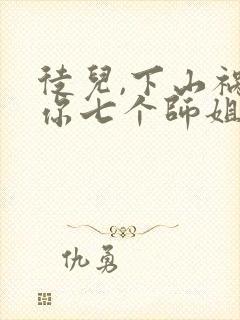 徒兒,下山禍
你七个師姐
仇勇